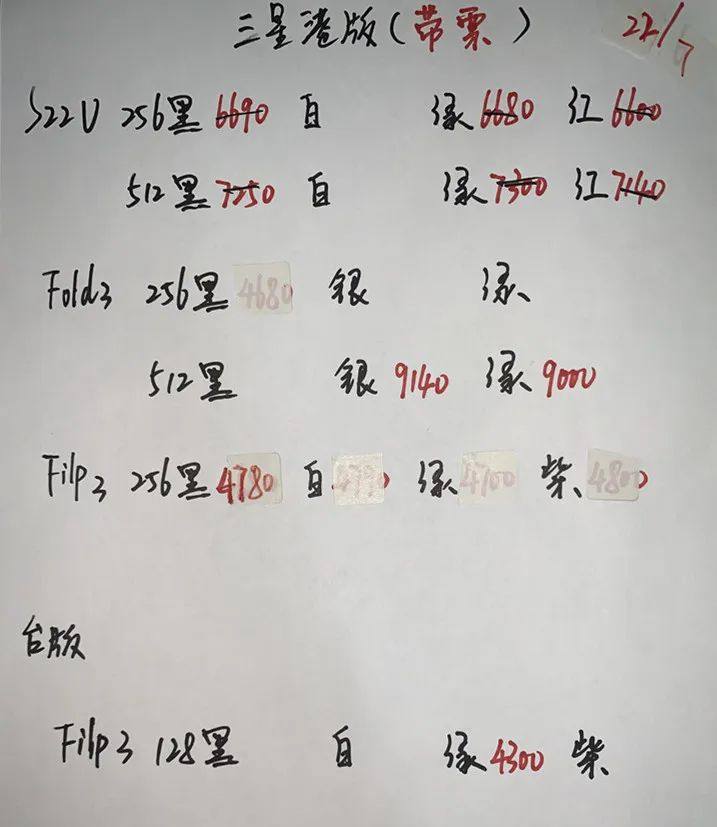 三星港版(带票) 22/7
S22U 256黑 6690 白 绿 6680 红 6600
512黑 7250 白 绿 7300 红 7140
Fold3 256黑 4680 银 绿
512黑 银 9140 绿 9000
Filp3 256黑 4780 白 绿 4700 紫 4800
台版
Filp3 128黑 白 绿 4300 紫